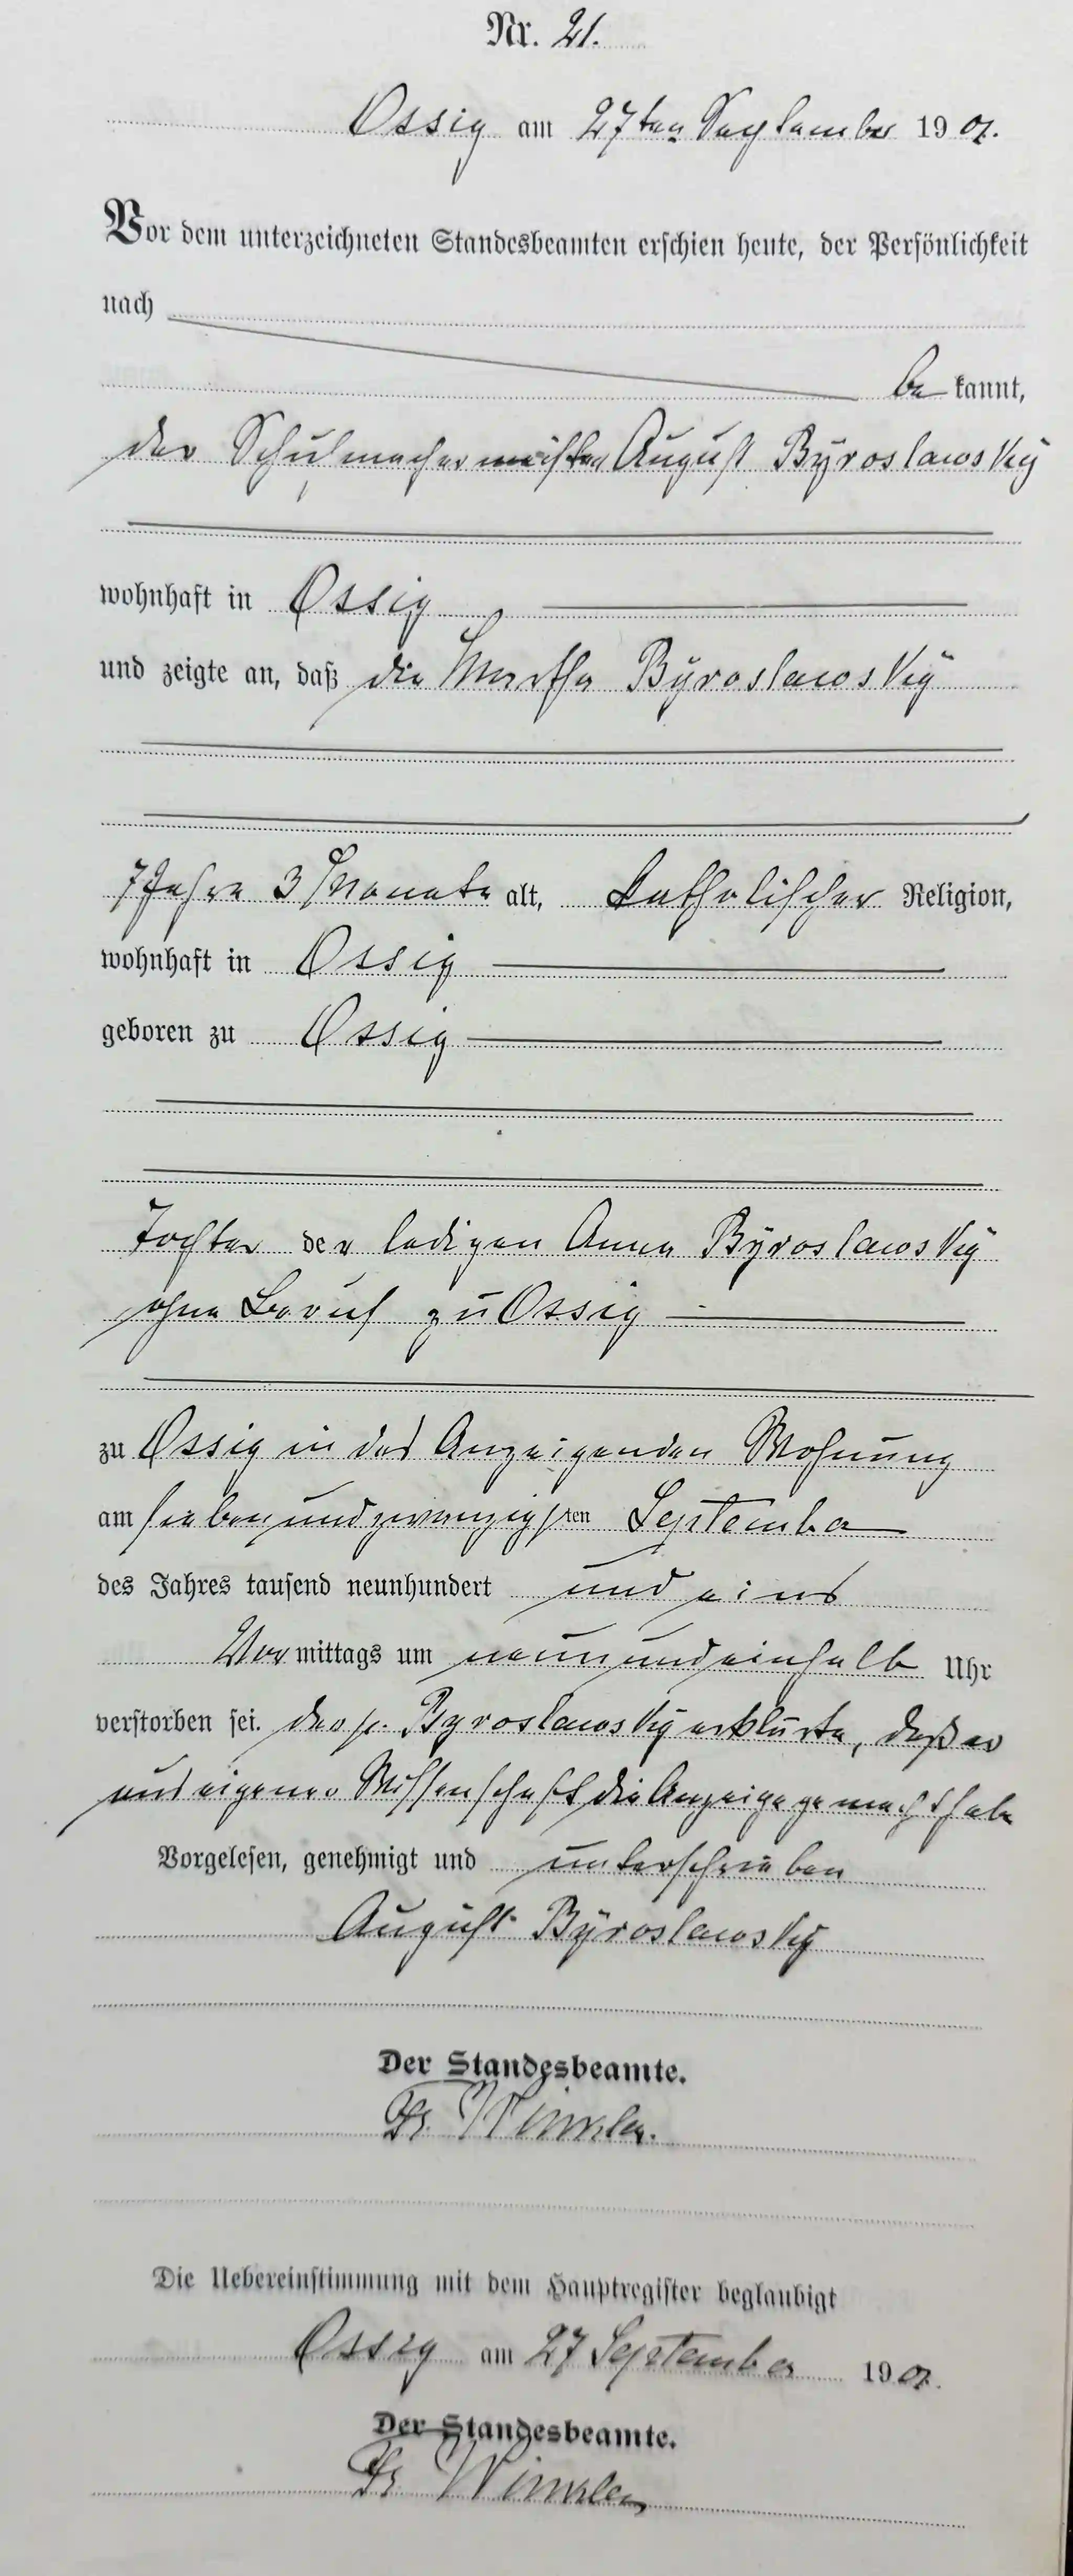 Nr. 21.
Ossig am 27ten September 19 01.
Vor dem unterzeichneten Standesbeamten erschien heute, der Persönlichkeit
nach
be kannt,
der Schuhmachermeister August Byroslawsky
wohnhaft in Ossig
und zeigte an, daß die Martha Byroslawsky
7 Jahre 3 Monate alt, katholischer Religion,
wohnhaft in Ossig
geboren zu Ossig
Tochter der ledigen Anna Byroslawsky
ohne Beruf zu Ossig
zu Ossig in des Anzeigenden Wohnung
am siebenundzwanzigsten September
des Jahres tausend neunhundert und eins
Vor mittags um neun und einhalb Uhr
verstorben sei. der p. Byroslawsky erklärte, daß er
aus eigener Wissenschaft die Anzeige gemacht habe
Vorgelesen, genehmigt und unterschrieben
August Byroslawsky
Der Standesbeamte.
Die Uebereinstimmung mit dem Hauptregister beglaubigt
Ossig am 27 September 19 01.
Der Standesbeamte.